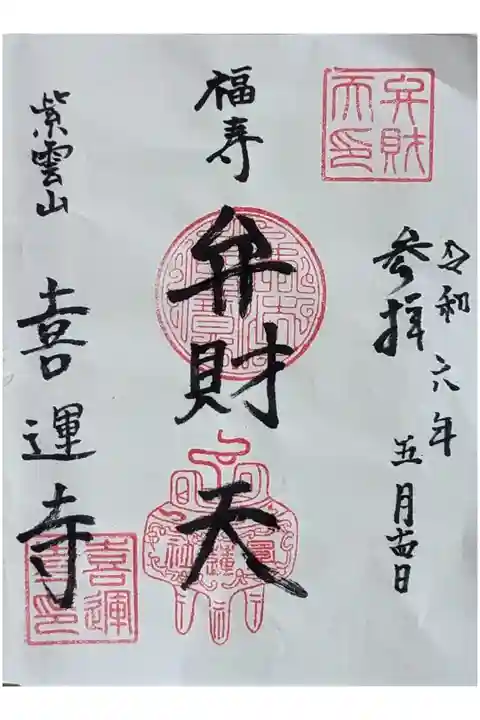 弁財
天印
令和六年五月十四日
参拝
福寿
弁財天
紫雲山
喜運寺
喜運
寺印